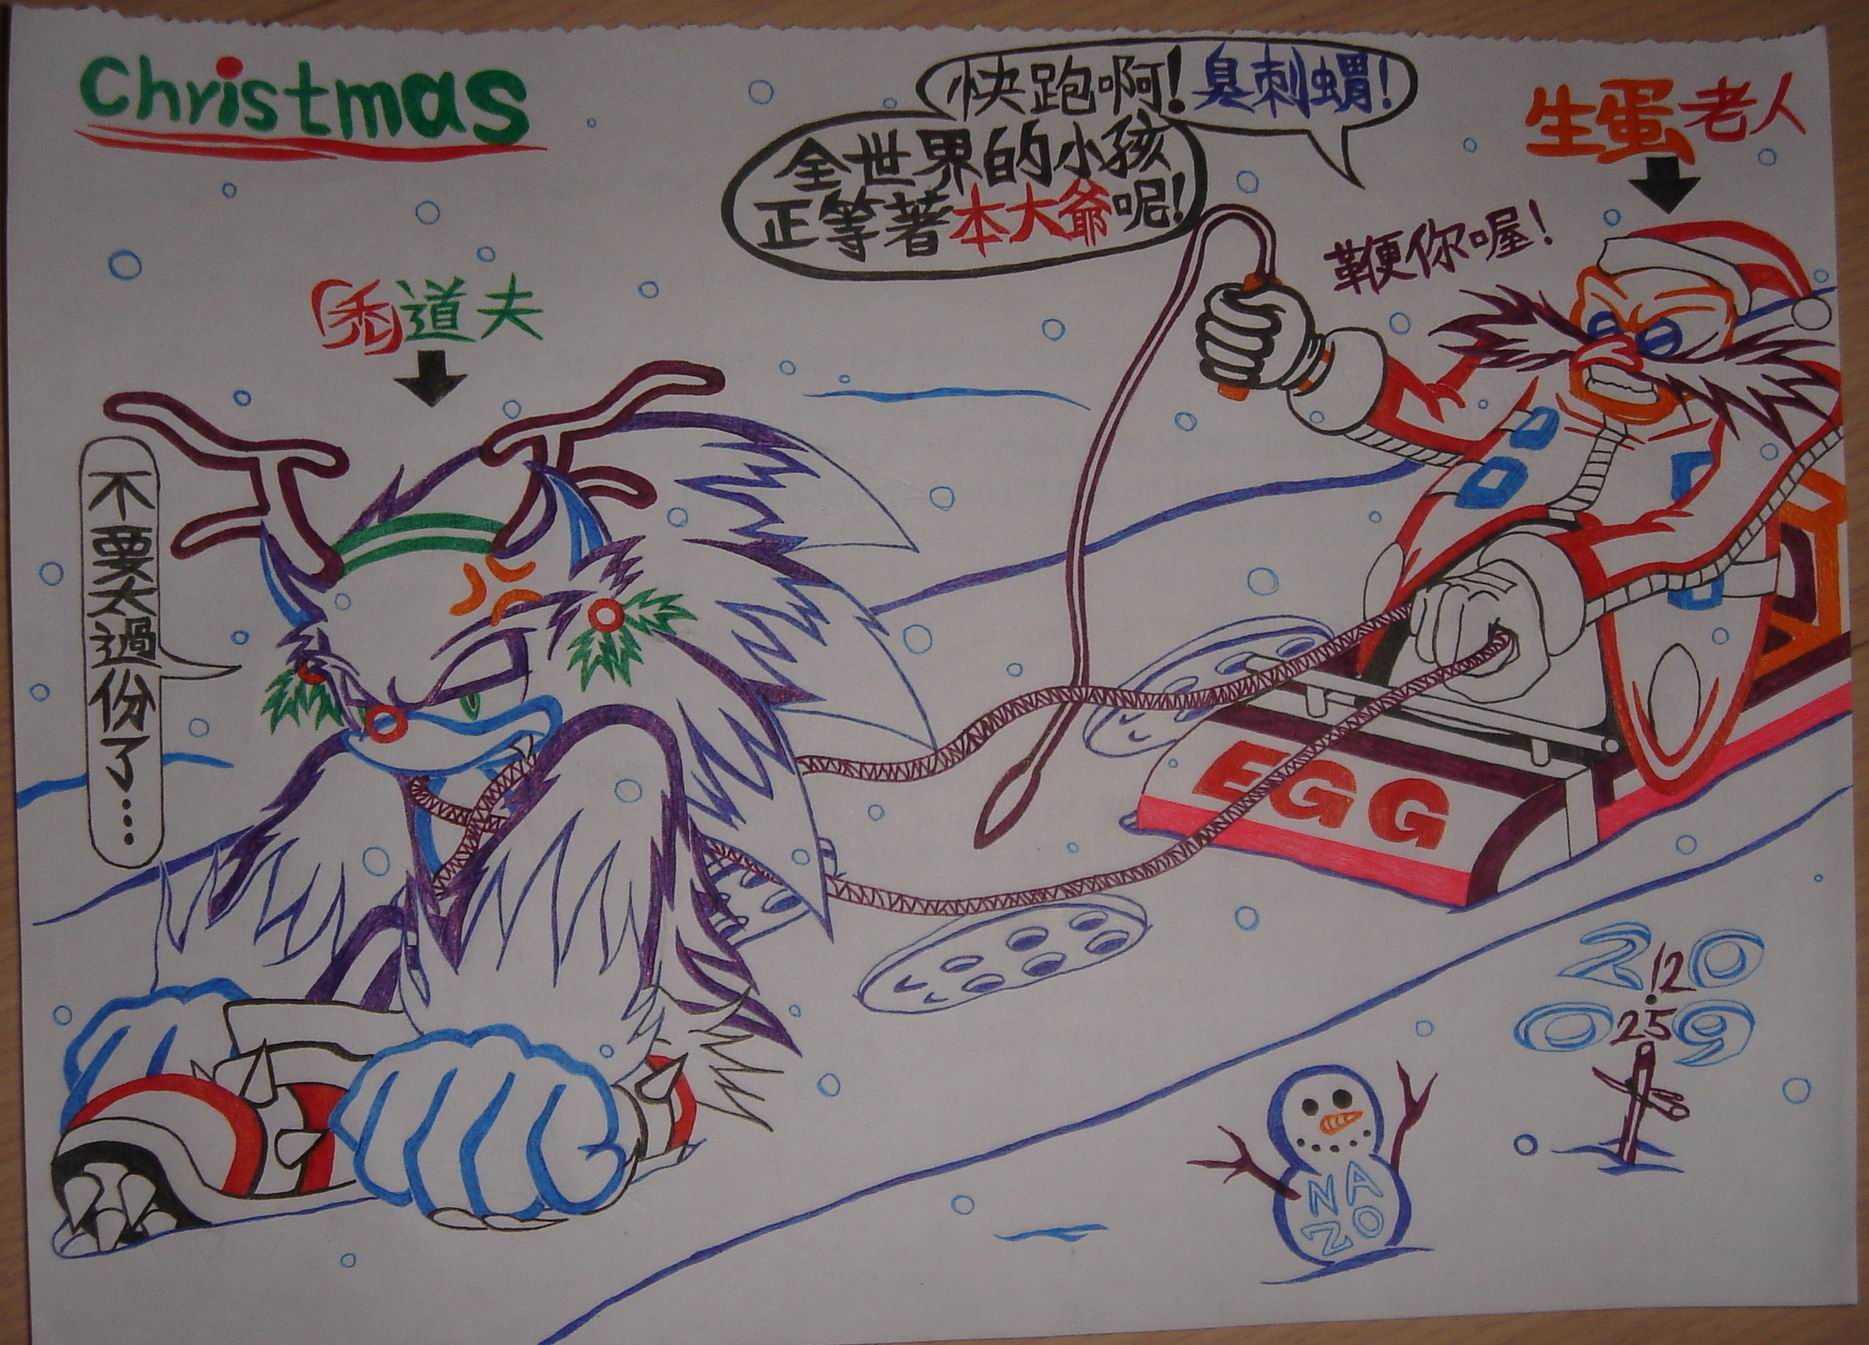 Christmas
快跑啊!臭刺蝟!
全世界的小孩
正等著本大爺呢!
生蛋老人
鞭你喔!
禿道夫
不要太過份了...
EGG
20
12
.
09
25
NA
ZO